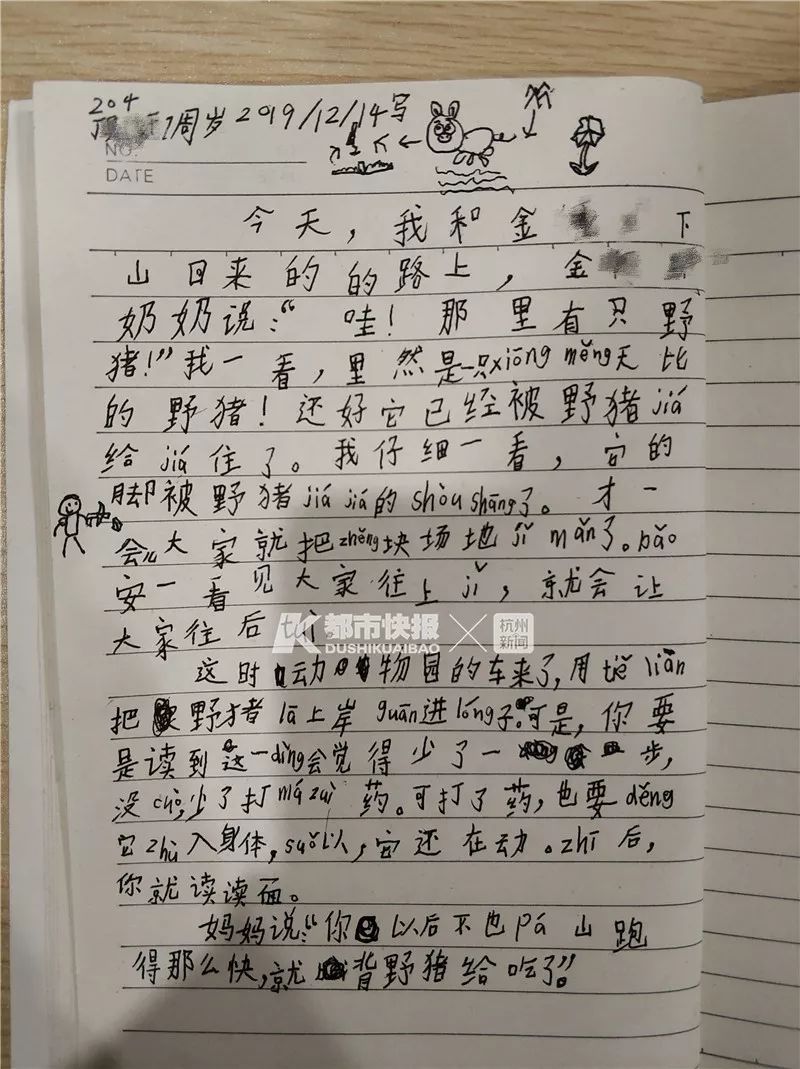 204
7周岁2019/12/14写
NO.
DATE
今天，我和金 下
山回来的的路上，金
奶奶说：“哇！那里有只野
猪！”我一看，里然是一只xiōng měng天比
的野猪！还好它已经被野猪jiá
给jiá住了。我仔细一看，它的
脚被野猪jiá jiá的shòu shāng了。才一
会儿大家就把zhěng块场地jǐ mǎn了。bǎo
安一看见大家往上jǐ，就会让
大家往后
都市快报 × 杭州新闻
DUSHIKUAIBAO
这时动物园的车来了，用tiě liān
把野猪lā上岸guān进lóng子。可是，你要
是读到这一dìng会觉得少了一步，
没cuò，少了打má zuì药。可打了药，也要děng
它zhù入身体，suǒ以，它还在动。zhī后，
你就读读面。
妈妈说：“你以后不也pá山跑
得那么快，就背野猪给吃了”。